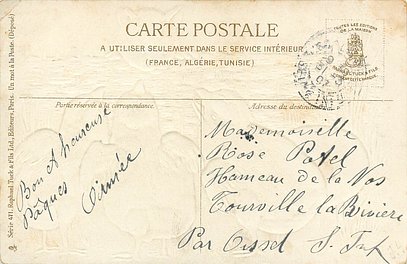 CARTE POSTALE
A UTILISER SEULEMENT DANS LE SERVICE INTÉRIEUR
(FRANCE, ALGÉRIE, TUNISIE)
TOUTES LES EDITIONS
DE LA MAISON
RAPHAEL TUCK & FILS
Partie réservée à la correspondance.
Adresse du destinataire
Bon et heureuse
Pâques
Aimée
Mademoiselle
Rose Patel
Hameau de la Nos
Tourville la Rivière
Par Oissel S. Inf
Série 471. Raphael Tuck & Fils Ltd., Editeurs, Paris. Un mot à la Poste. (Déposé)